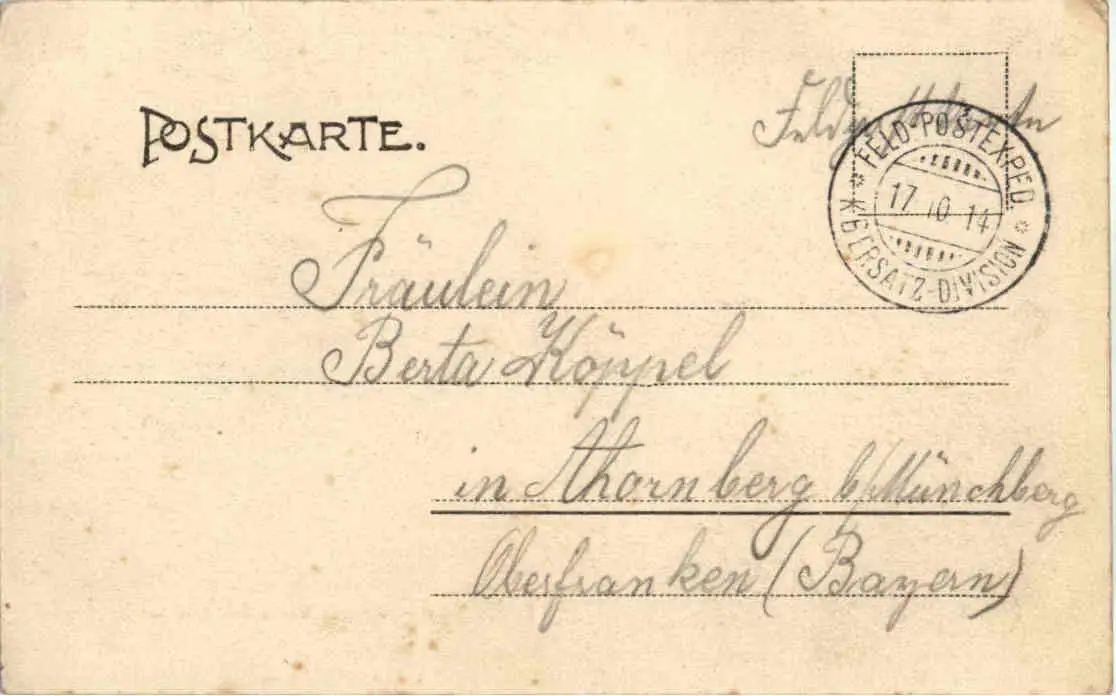 POSTKARTE.
Feldpostkarte
FELD-POSTEXPED.
17 10 14
* 6 ERSATZ-DIVISION *
Fräulein
Berta Köppel
in Ahornberg b/Münchberg
Oberfranken (Bayern)